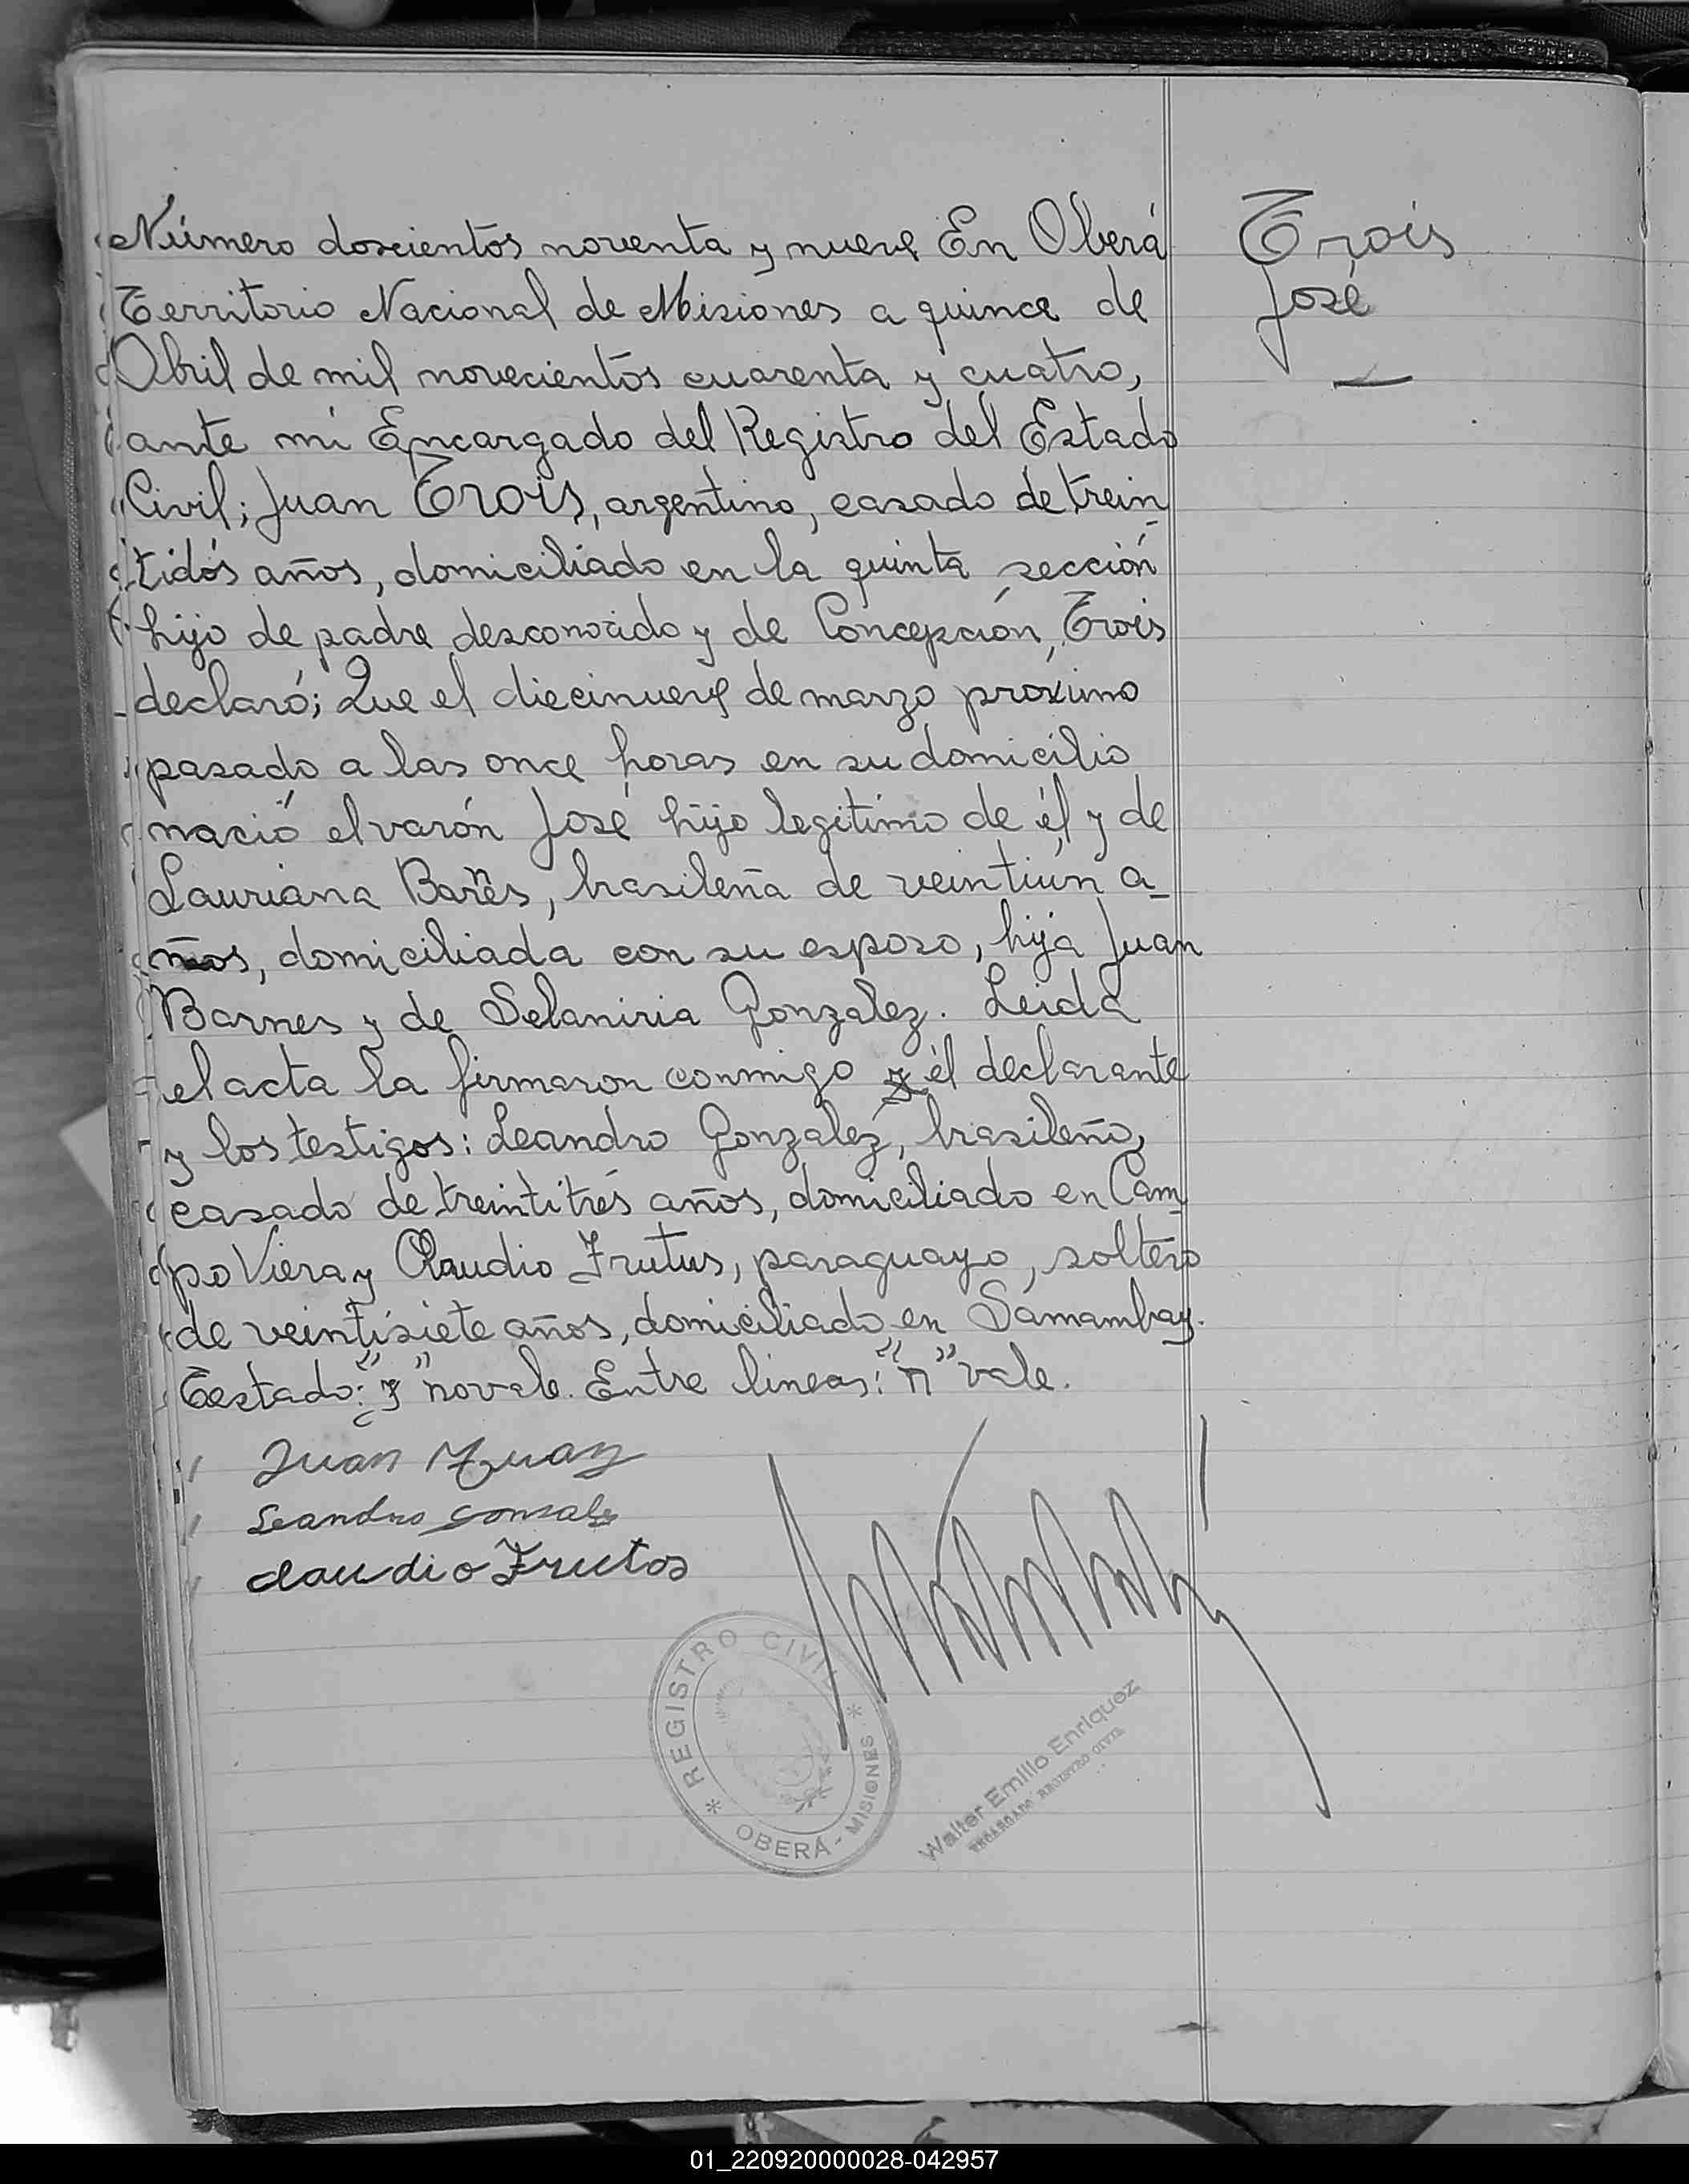 Número doscientos noventa y nueve En Oberá
Territorio Nacional de Misiones a quince de
Abril de mil novecientos cuarenta y cuatro,
ante mi Encargado del Registro del Estado
Civil; Juan Trois, argentino, casado de trein
tidós años, domiciliado en la quinta sección
hijo de padre desconocido y de Concepción, Trois
declaró; Que el diecinueve de marzo próximo
pasado a las once horas en su domicilio
nació el varón José hijo legítimo de él y de
Lauriana Barnes, brasileña de veintiún a-
ños, domiciliada con su esposo, hija Juan
Barnes y de Selaniria Gonzalez. Leida
el acta la firmaron conmigo y él declarante
y los testigos: Leandro Gonzalez, brasileño,
casado de treintitrés años, domiciliado en Cam
po Viera y Claudio Frutus, paraguayo, soltero
de veintisiete años, domiciliado en Samambay.
Testado: "y" no vale. Entre lineas: "n" vale.
Trois
José
Juan
Leandro Gonzalez
Claudio Frutos
* REGISTRO CIVIL *
OBERÁ - MISIONES
Walter Emilio Enriquez
ENCARGADO REGISTRO CIVIL
01_220920000028-042957